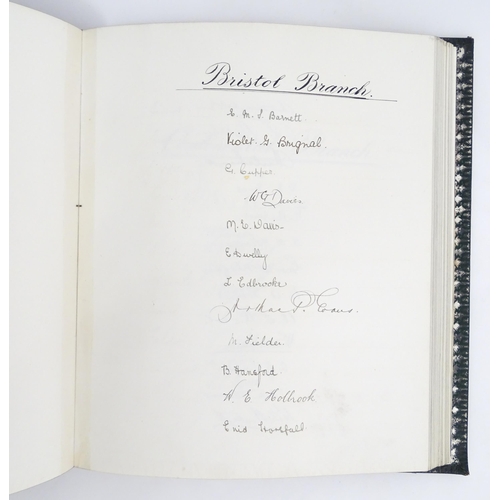 Bristol Branch.
E. M. I. Barnett
Violet. G. Brignal.
G. Cupper
W G Davies
M. E. Davis
E Dwelly
L. Edbrooke
Arthur P. Evans.
M. Fielder.
B. Hansford.
W. E. Holbrook
Enid Horsfall